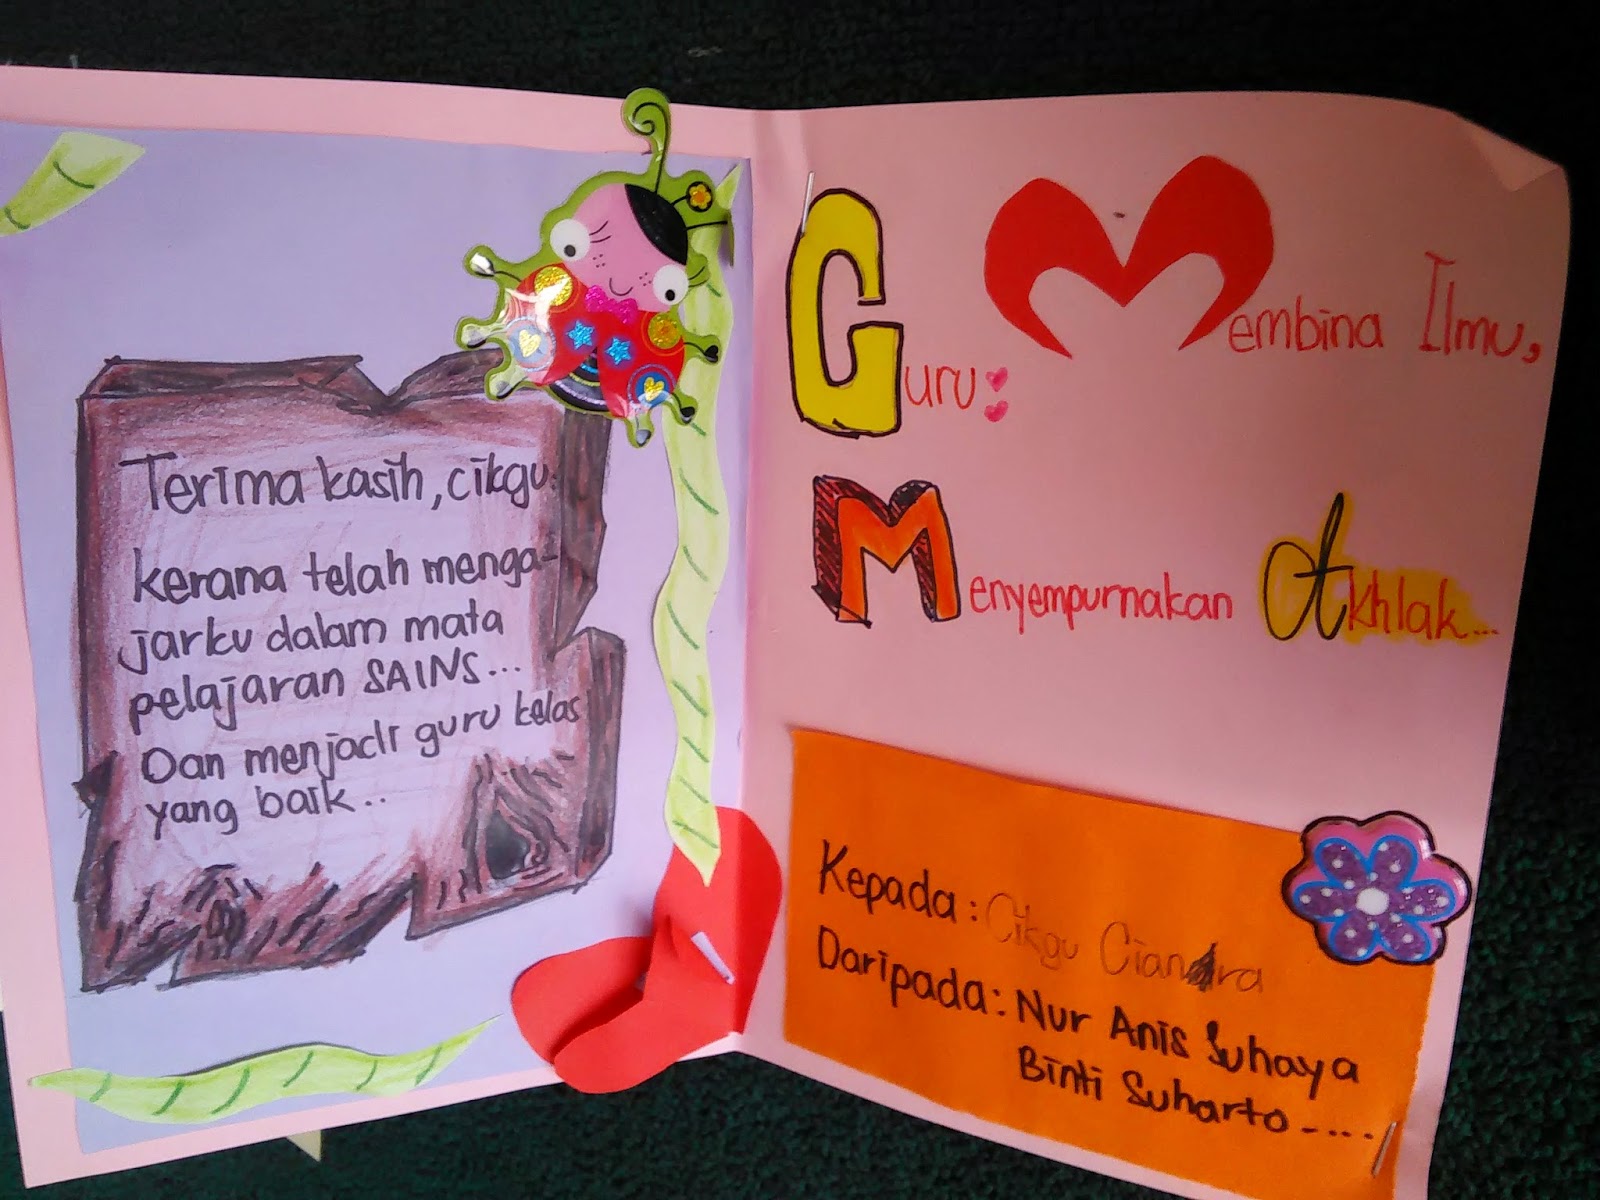 Terima kasih, cikgu.
kerana telah menga-
jarku dalam mata
pelajaran SAINS...
Dan menjadi guru kelas
yang baik..
Guru: Membina Ilmu,
Menyempurnakan Akhlak...
Kepada: Cikgu Ciandra
Daripada: Nur Anis Suhaya
Binti Suharto-....